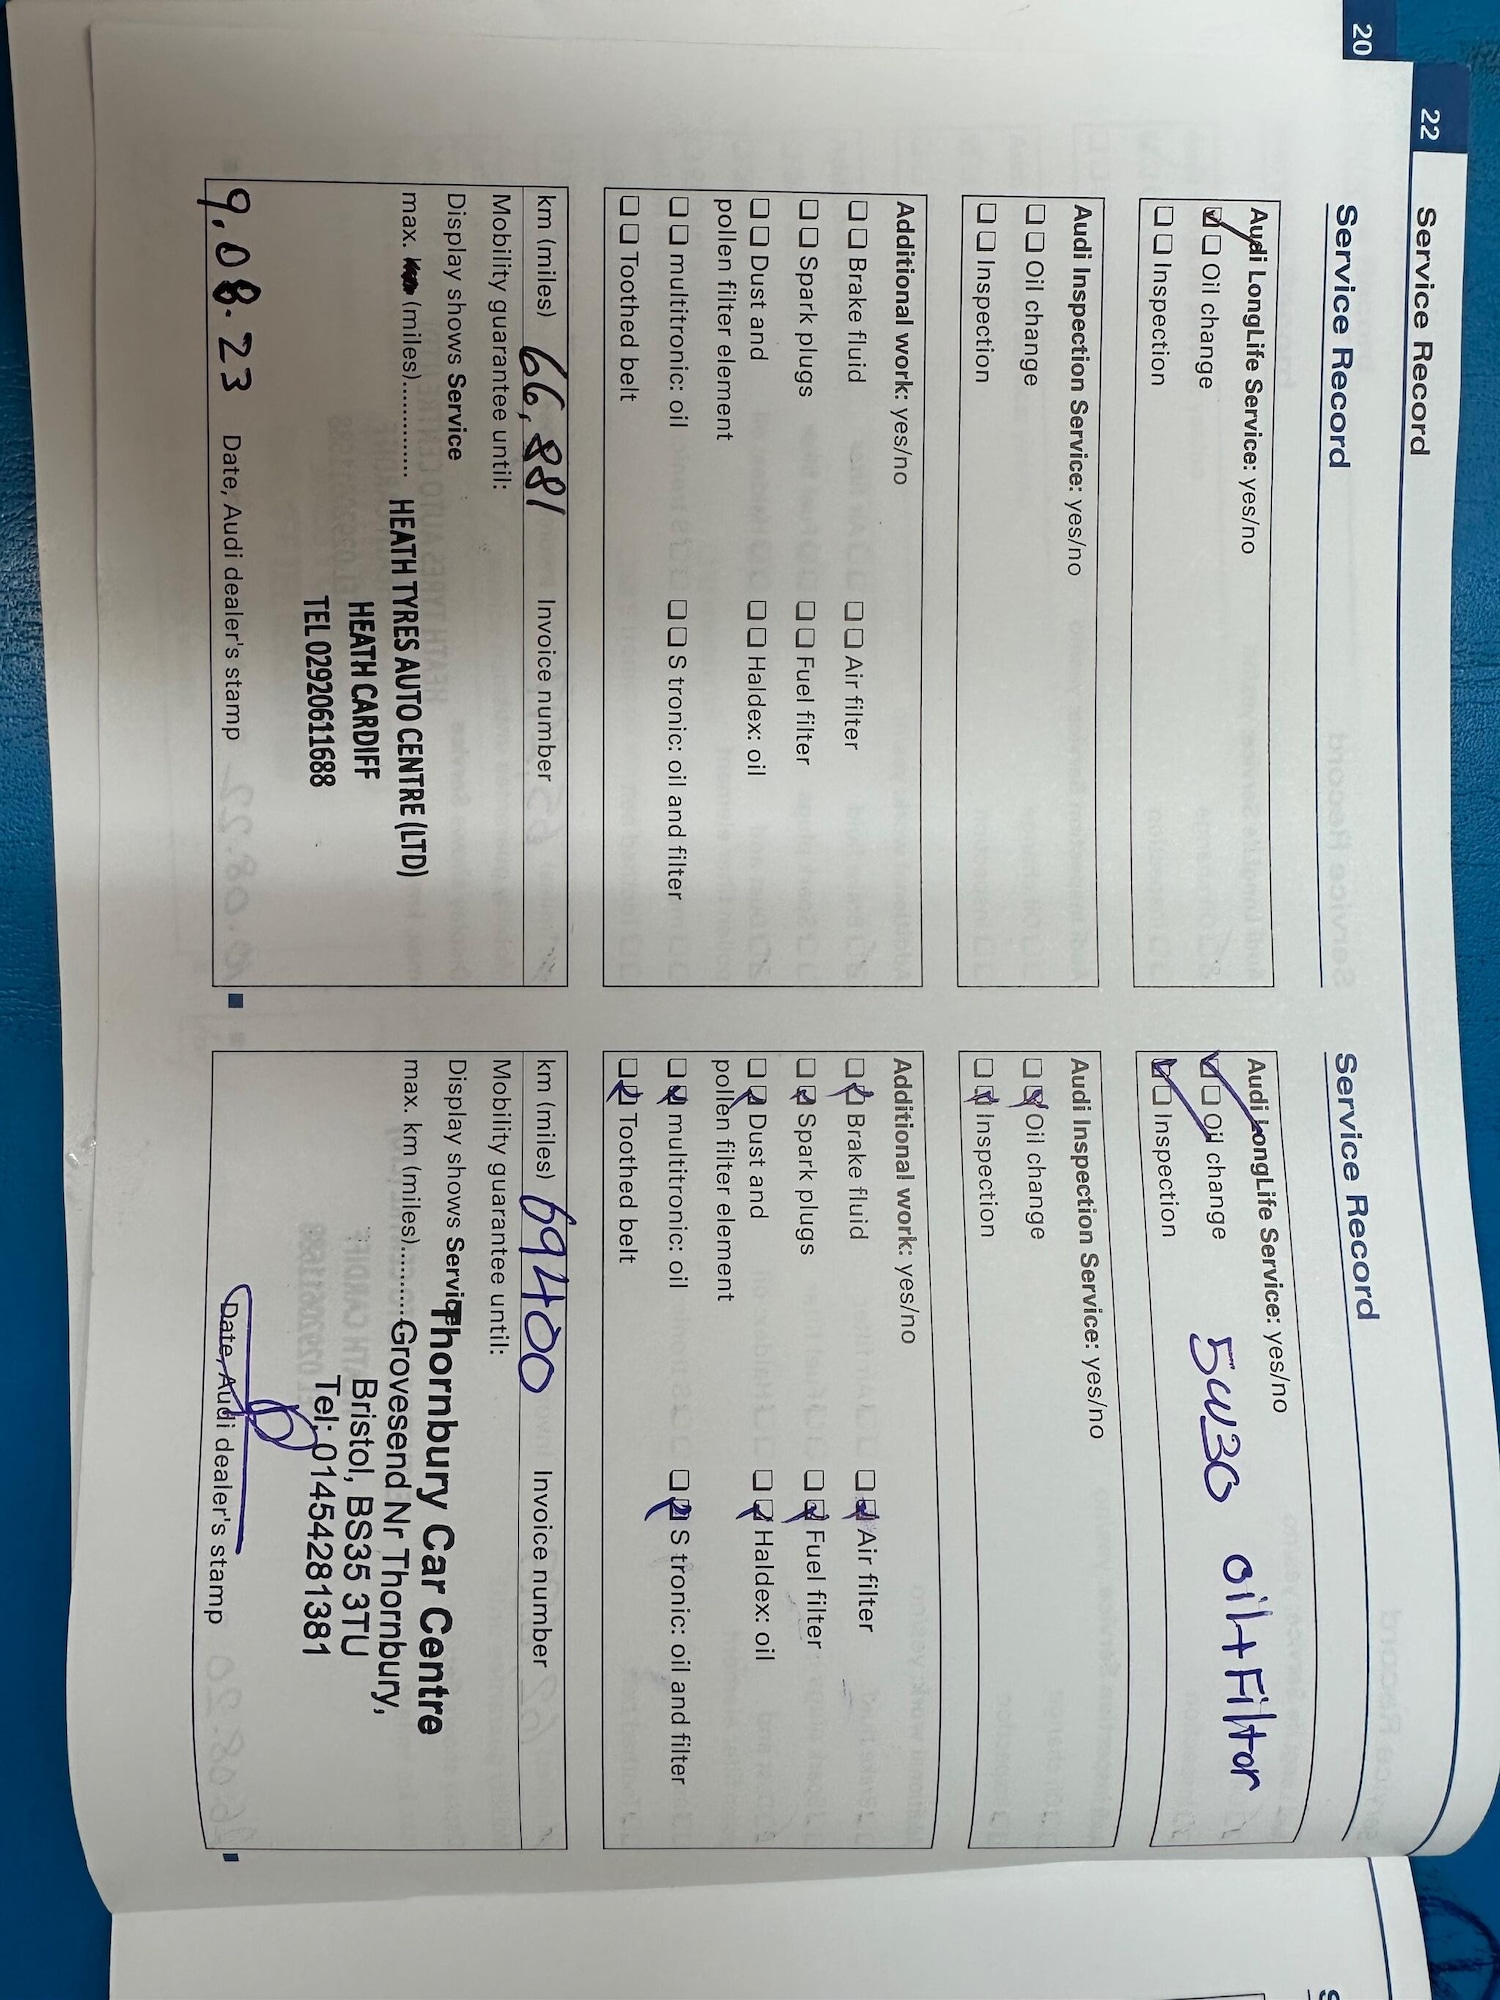 20
22 Service Record
Service Record
Audi LongLife Service: yes/no
Oil change
Inspection
Audi Inspection Service: yes/no
Oil change
Inspection
Additional work: yes/no
Brake fluid Air filter
Spark plugs Fuel filter
Dust and Haldex: oil
pollen filter element
multitronic: oil S tronic: oil and filter
Toothed belt
km (miles) 66,881 Invoice number
Mobility guarantee until:
Display shows Service
max. (miles).............
HEATH TYRES AUTO CENTRE (LTD)
HEATH CARDIFF
TEL 02920611688
9.08.23 Date, Audi dealer's stamp
Service Record
Audi LongLife Service: yes/no
Oil change
Inspection
5W30 oil+Filtor
Audi Inspection Service: yes/no
Oil change
Inspection
Additional work: yes/no
Brake fluid Air filter
Spark plugs Fuel filter
Dust and Haldex: oil
pollen filter element
multitronic: oil S tronic: oil and filter
Toothed belt
km (miles) 69400 Invoice number
Mobility guarantee until:
Display shows Service
max. km (miles)..........
Thornbury Car Centre
Grovesend Nr Thornbury,
Bristol, BS35 3TU
Tel: 01454281381
Date, Audi dealer's stamp